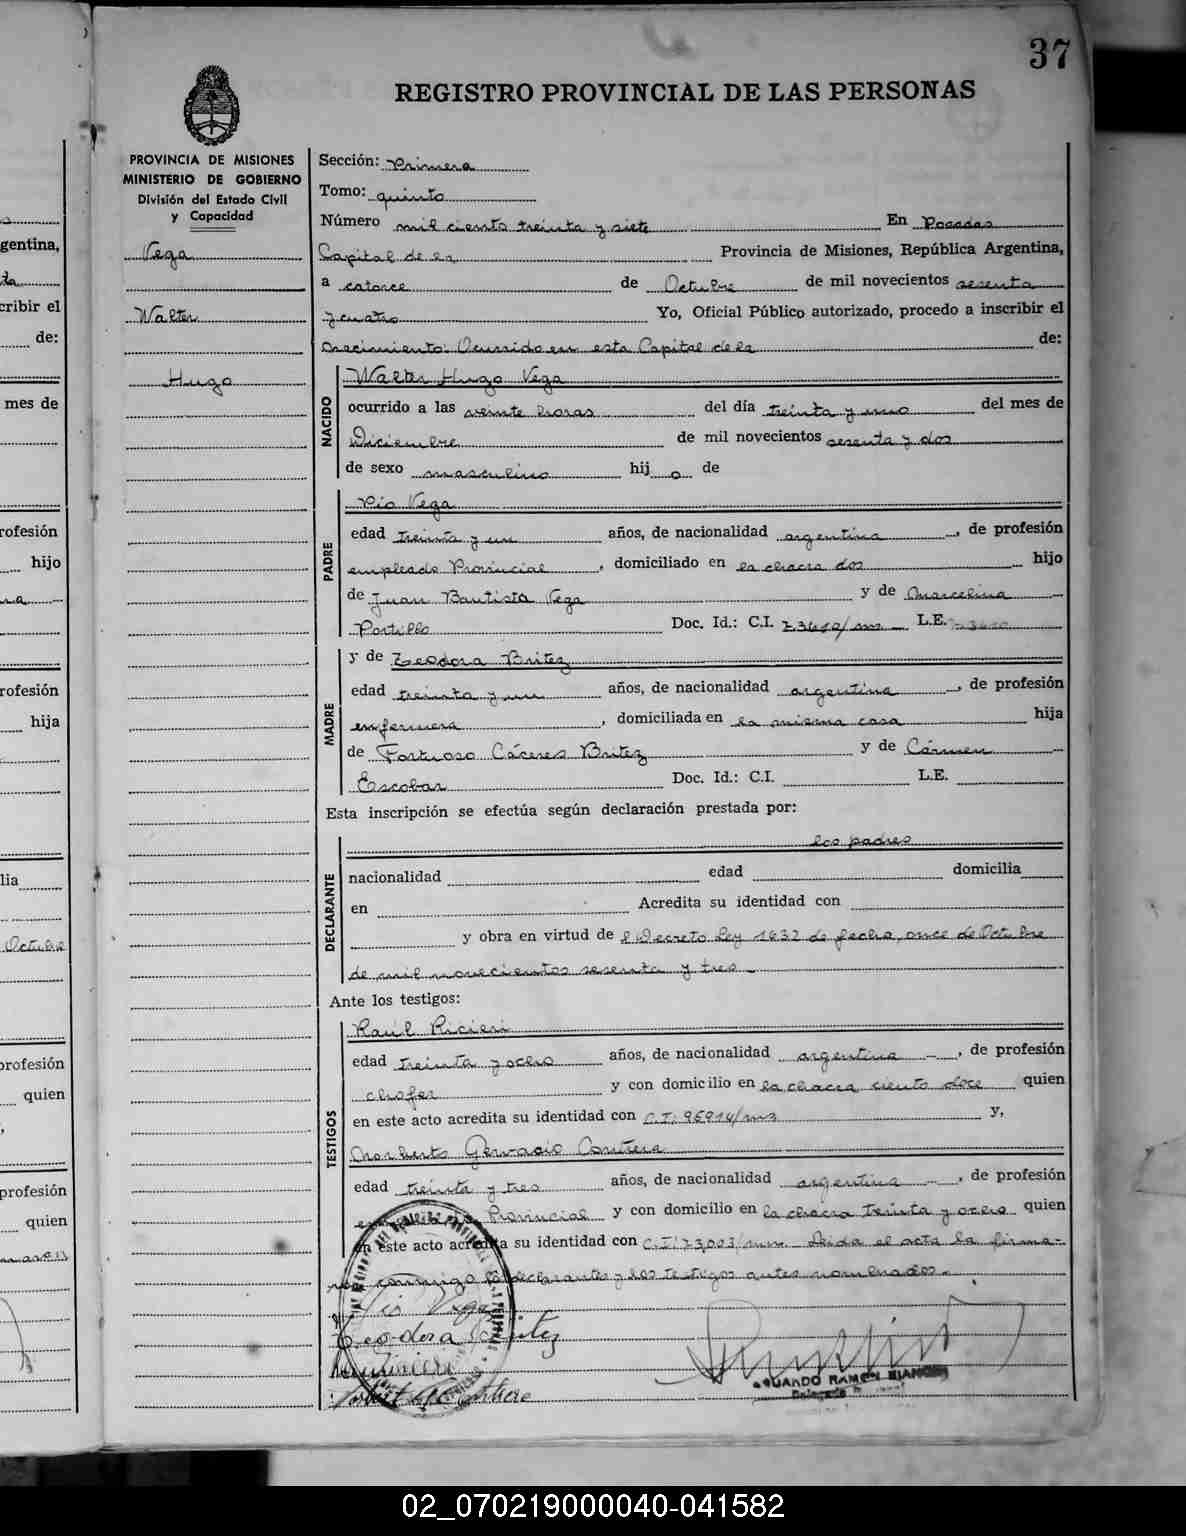 37
REGISTRO PROVINCIAL DE LAS PERSONAS
PROVINCIA DE MISIONES
MINISTERIO DE GOBIERNO
División del Estado Civil
y Capacidad
Vega
Walter
Hugo
Sección: Primera
Tomo: quinto
Número mil ciento treinta y siete En Posadas
Capital de la Provincia de Misiones, República Argentina,
a catorce de Octubre de mil novecientos sesenta
y cuatro Yo, Oficial Público autorizado, procedo a inscribir el
nacimiento: Ocurrido en esta Capital de la de:
NACIDO
Walter Hugo Vega
ocurrido a las veinte horas del día treinta y uno del mes de
Diciembre de mil novecientos sesenta y dos
de sexo masculino hij o de
PADRE
Pío Vega
edad treinta y un años, de nacionalidad argentina, de profesión
empleado Provincial, domiciliado en la chacra dos hijo
de Juan Bautista Vega y de Marcelina
Portillo Doc. Id.: C.I. L.E.
MADRE
y de Teodora Britez
edad treinta y un años, de nacionalidad argentina, de profesión
enfermera, domiciliada en la misma casa hija
de Fortuoso Cáceres Britez y de Cármen
Escobar Doc. Id.: C.I. L.E.
Esta inscripción se efectúa según declaración prestada por:
DECLARANTE
los padres
nacionalidad edad domicilia
en Acredita su identidad con
y obra en virtud de l Decreto Ley 1632 de fecha, once de Octubre
de mil novecientos sesenta y tres
Ante los testigos:
TESTIGOS
Raúl Ricieri
edad treinta y ocho años, de nacionalidad argentina, de profesión
chofer y con domicilio en la chacra ciento doce quien
en este acto acredita su identidad con C.I: 95914/mns y,
Norberto Gervacio Contrera
edad treinta y tres años, de nacionalidad argentina, de profesión
Provincial y con domicilio en la chacra treinta y ocho quien
en este acto acredita su identidad con C.I: 73003/mns. Leida el acta la firma-
ron conmigo los declarantes y los testigos antes nombrados.
Pio Vega
Teodora Britez
EDUARDO RAMON BIANCHI
02_070219000040-041582